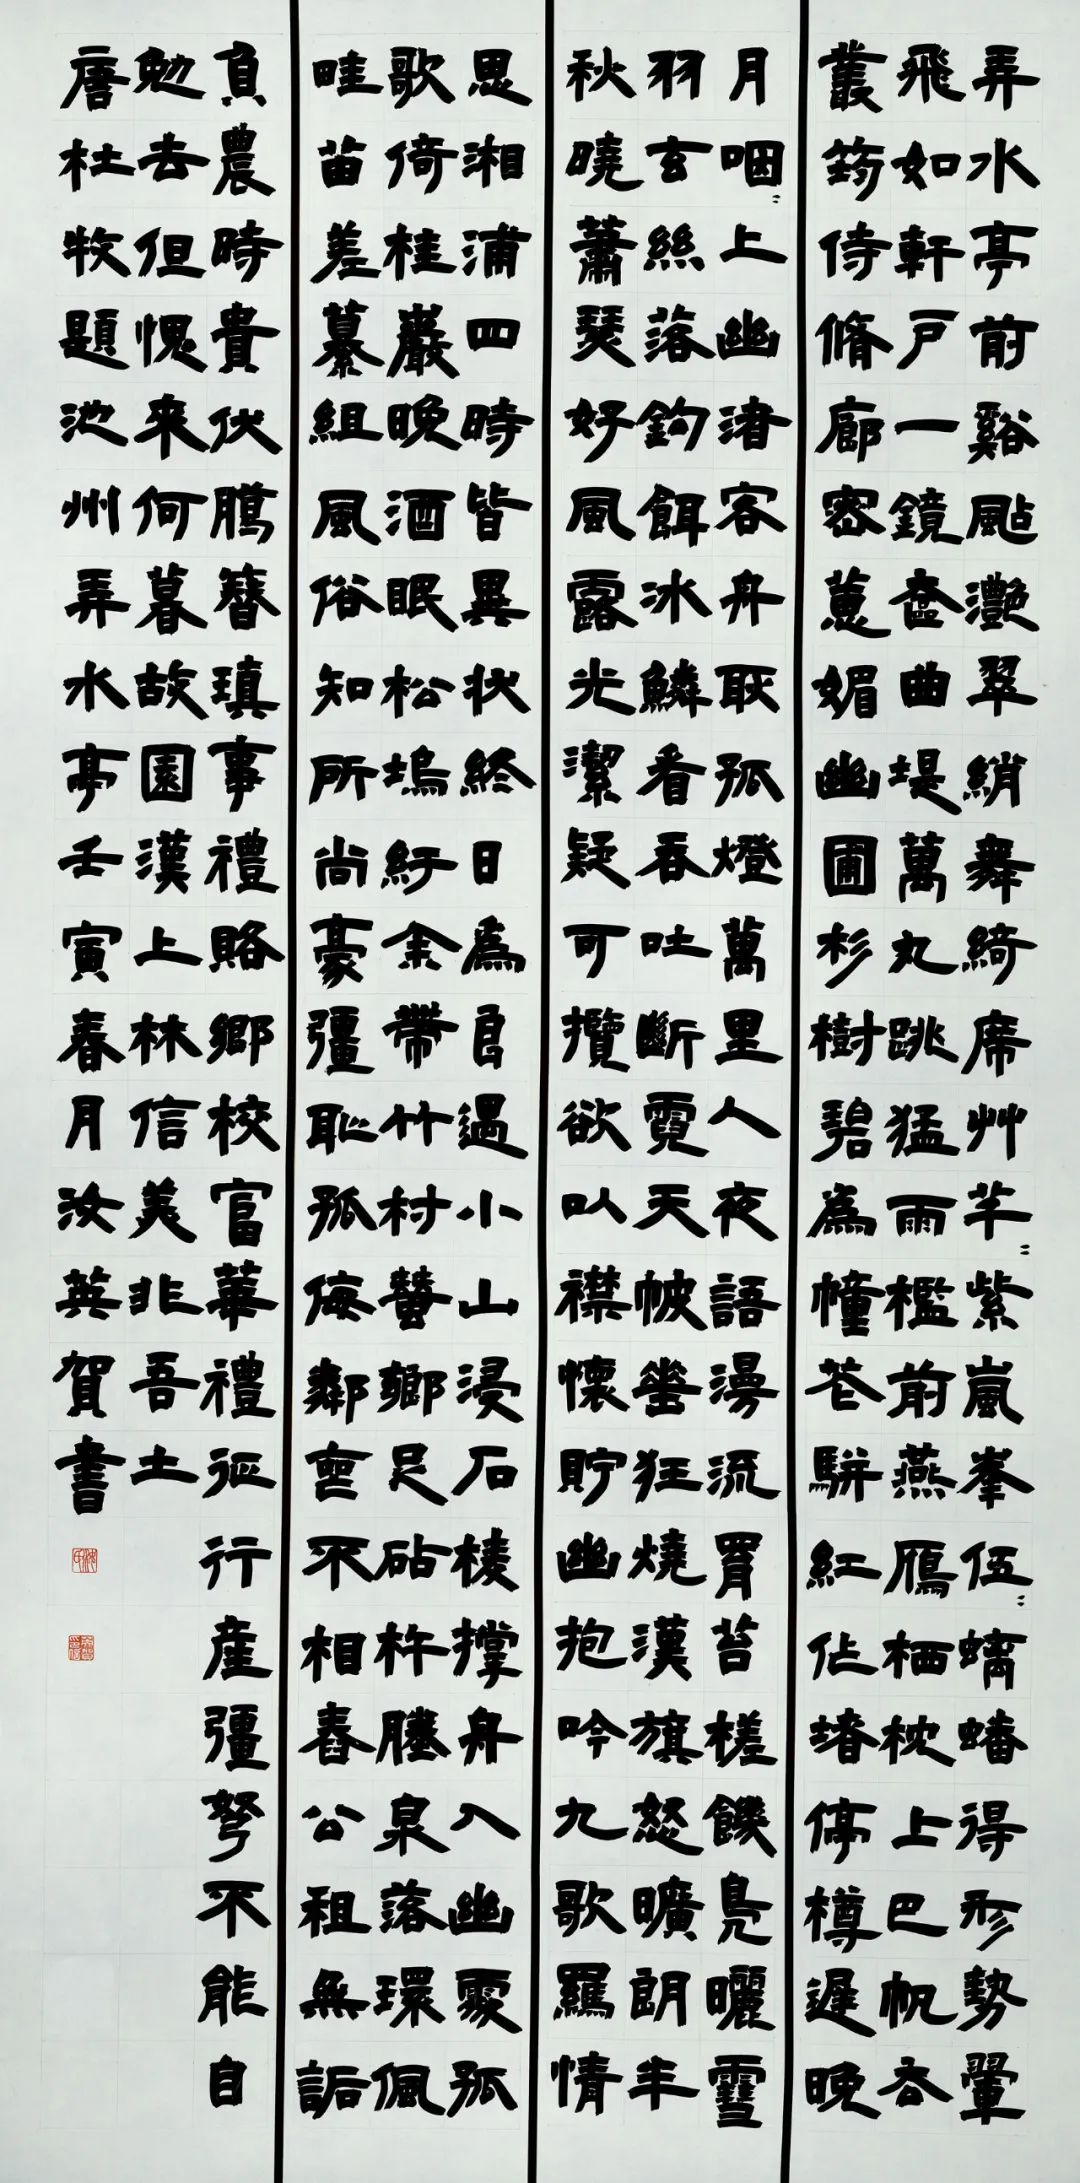 弄水亭前谿颭灧翠綃舞綺席艸芊〻紫嵐峯伍〻螭蟠得形勢翬
飛如軒戶一鏡奩曲堤萬丸跳猛雨檻前燕鴈栖枕上巴帆去
叢筠侍脩廊密蕙媚幽圃杉樹碧爲幢花駢紅作堵停樽遲晚
月咽〻上幽渚客舟耿孤燈萬里人夜語漫流罥苔槎饑鳧曬雪
羽玄絲落鉤餌冰鱗看吞吐斷霓天帔垂狂燒漢旗怒曠朗半
秋曉蕭瑟好風露光潔疑可攬欲以襟懷貯幽抱吟九歌羈情
思湘浦四時皆異狀終日爲良遇小山浸石棱撑舟入幽處孤
歌倚桂巖晚酒眠松塢紆余帶竹村蠶鄉足砧杵塍泉落環佩
畦苗差纂組風俗知所尚豪彊恥孤侮鄰喪不相舂公租無詬
負農時貴伏臘簪瑱事禮賂鄉校富華禮征行産彊弩不能自
勉去但愧來何暮故園漢上林信美非吾土
唐杜牧題池州弄水亭壬寅春月汝英賀書